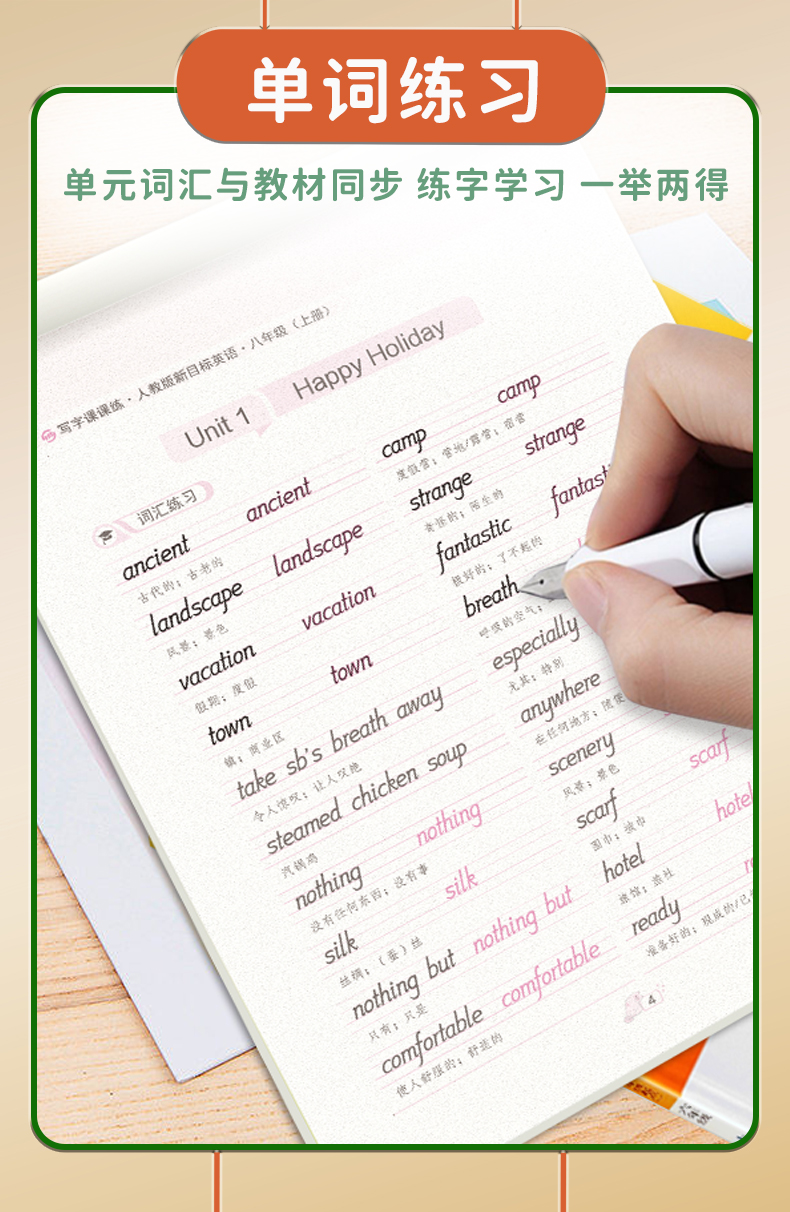 单词练习
单元词汇与教材同步 练字学习 一举两得
写字课课练·人教版新目标英语·八年级（上册）
Unit 1 Happy Holiday
词汇练习
ancient ancient
古代的；古老的
landscape landscape
风景；景色
vacation vacation
假期；度假
town town
镇；商业区
take sb's breath away
令人惊叹；让人叹绝
steamed chicken soup
汽锅鸡
nothing nothing
没有任何东西；没有事
silk silk
丝绸；（蚕）丝
nothing but nothing but
只有；只是
comfortable comfortable
使人舒服的；舒适的
camp camp
度假营；营地/露营；宿营
strange strange
奇怪的；陌生的
fantastic fantasti
极好的；了不起的
breath
呼吸的空气；
especially
尤其；特别
anywhere
在任何地方；随便
scenery
风景；景色
scarf scarf
围巾；披巾
hotel hotel
旅馆；旅社
ready re
准备好的；现成的/已
4